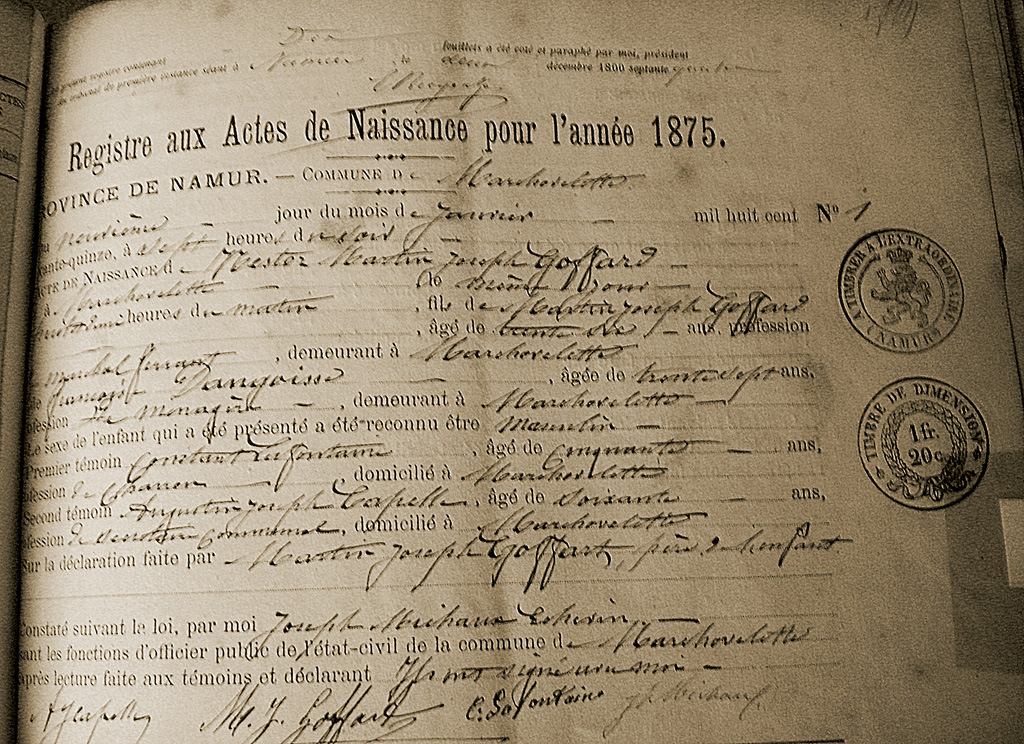 présent registre contenant Deux feuillets a été coté et paraphé par moi, président
du tribunal de première instance séant à Namur, le deux décembre 1800 septante quatre
Registre aux Actes de Naissance pour l'année 1875.
OVINCE DE NAMUR. — COMMUNE De Marchovelette
neuvième jour du mois de Janvier mil huit cent Nº 1
ante-quinze, à sept heures du soir
CTE DE NAISSANCE de Nestor Martin Joseph Goffard
à Marchovelette le même jour
heures du matin, fils de Martin Joseph Goffard
, âgé de trente six ans, profession
maréchal ferrant, demeurant à Marchovelette
françoise Dangoisse, âgée de trente sept ans,
ofession de menagère, demeurant à Marchovelette
Le sexe de l'enfant qui a été présenté a été reconnu être masculin
Premier témoin Constant Lafontaine, âgé de cinquante ans,
ofession de charron, domicilié à Marchovelette
Second témoin Augustin Joseph Capelle, âgé de soixante ans,
ofession de secrétaire communal, domicilié à Marchovelette
Sur la déclaration faite par Martin Joseph Goffart, père de l'enfant
Constaté suivant la loi, par moi Joseph Michaux Echevin
sant les fonctions d'officier public de l'état-civil de la commune de Marchovelette
après lecture faite aux témoins et déclarant Ils ont signé avec moi
A J Capelle M. J. Goffart C. Lafontaine Jh Michaux
A TIMBRER A L'EXTRAORDINAIRE
A NAMUR
TIMBRE DE DIMENSION
1 fr.
20 c.